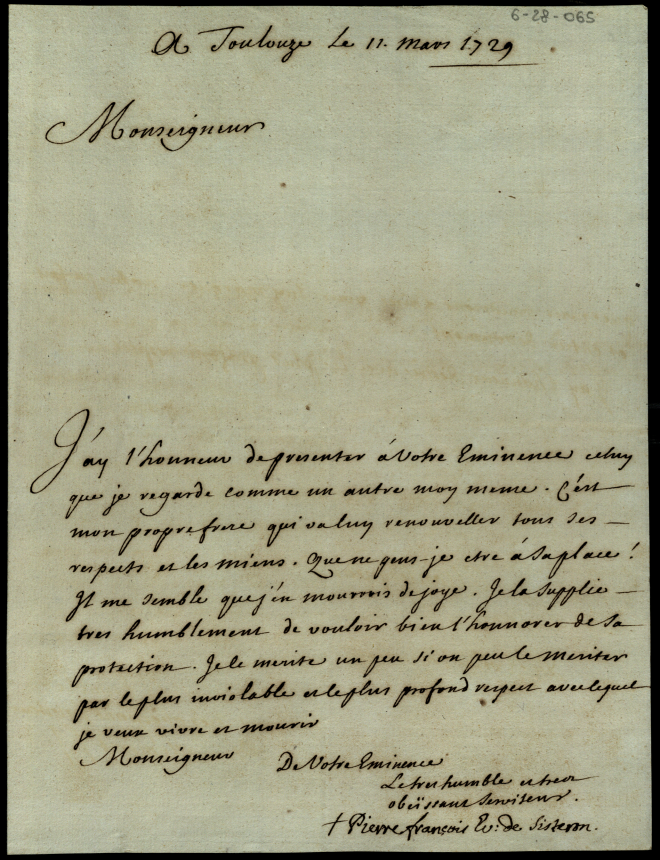 6-28-065
A Toulouze Le 11. Mars 1729
Monseigneur
J'ay l'honneur de presenter à Votre Eminence celuy
que je regarde comme un autre moy meme. C'est
mon propre frere qui va luy renouveller tous ses
respects et les miens. Que ne peus-je etre à sa place!
Il me semble que j'en mourrois de joye. Je la supplie
tres humblement de vouloir bien l'honnorer de sa
protection. Je le merite un peu si on peu le meriter
par le plus inviolable et le plus profond respect avec lequel
je veux vivre et mourir
Monseigneur De Votre Eminence
Le tres humble et tres
obeïssant Serviteur.
† Pierre françois Ev: de Sisteron.